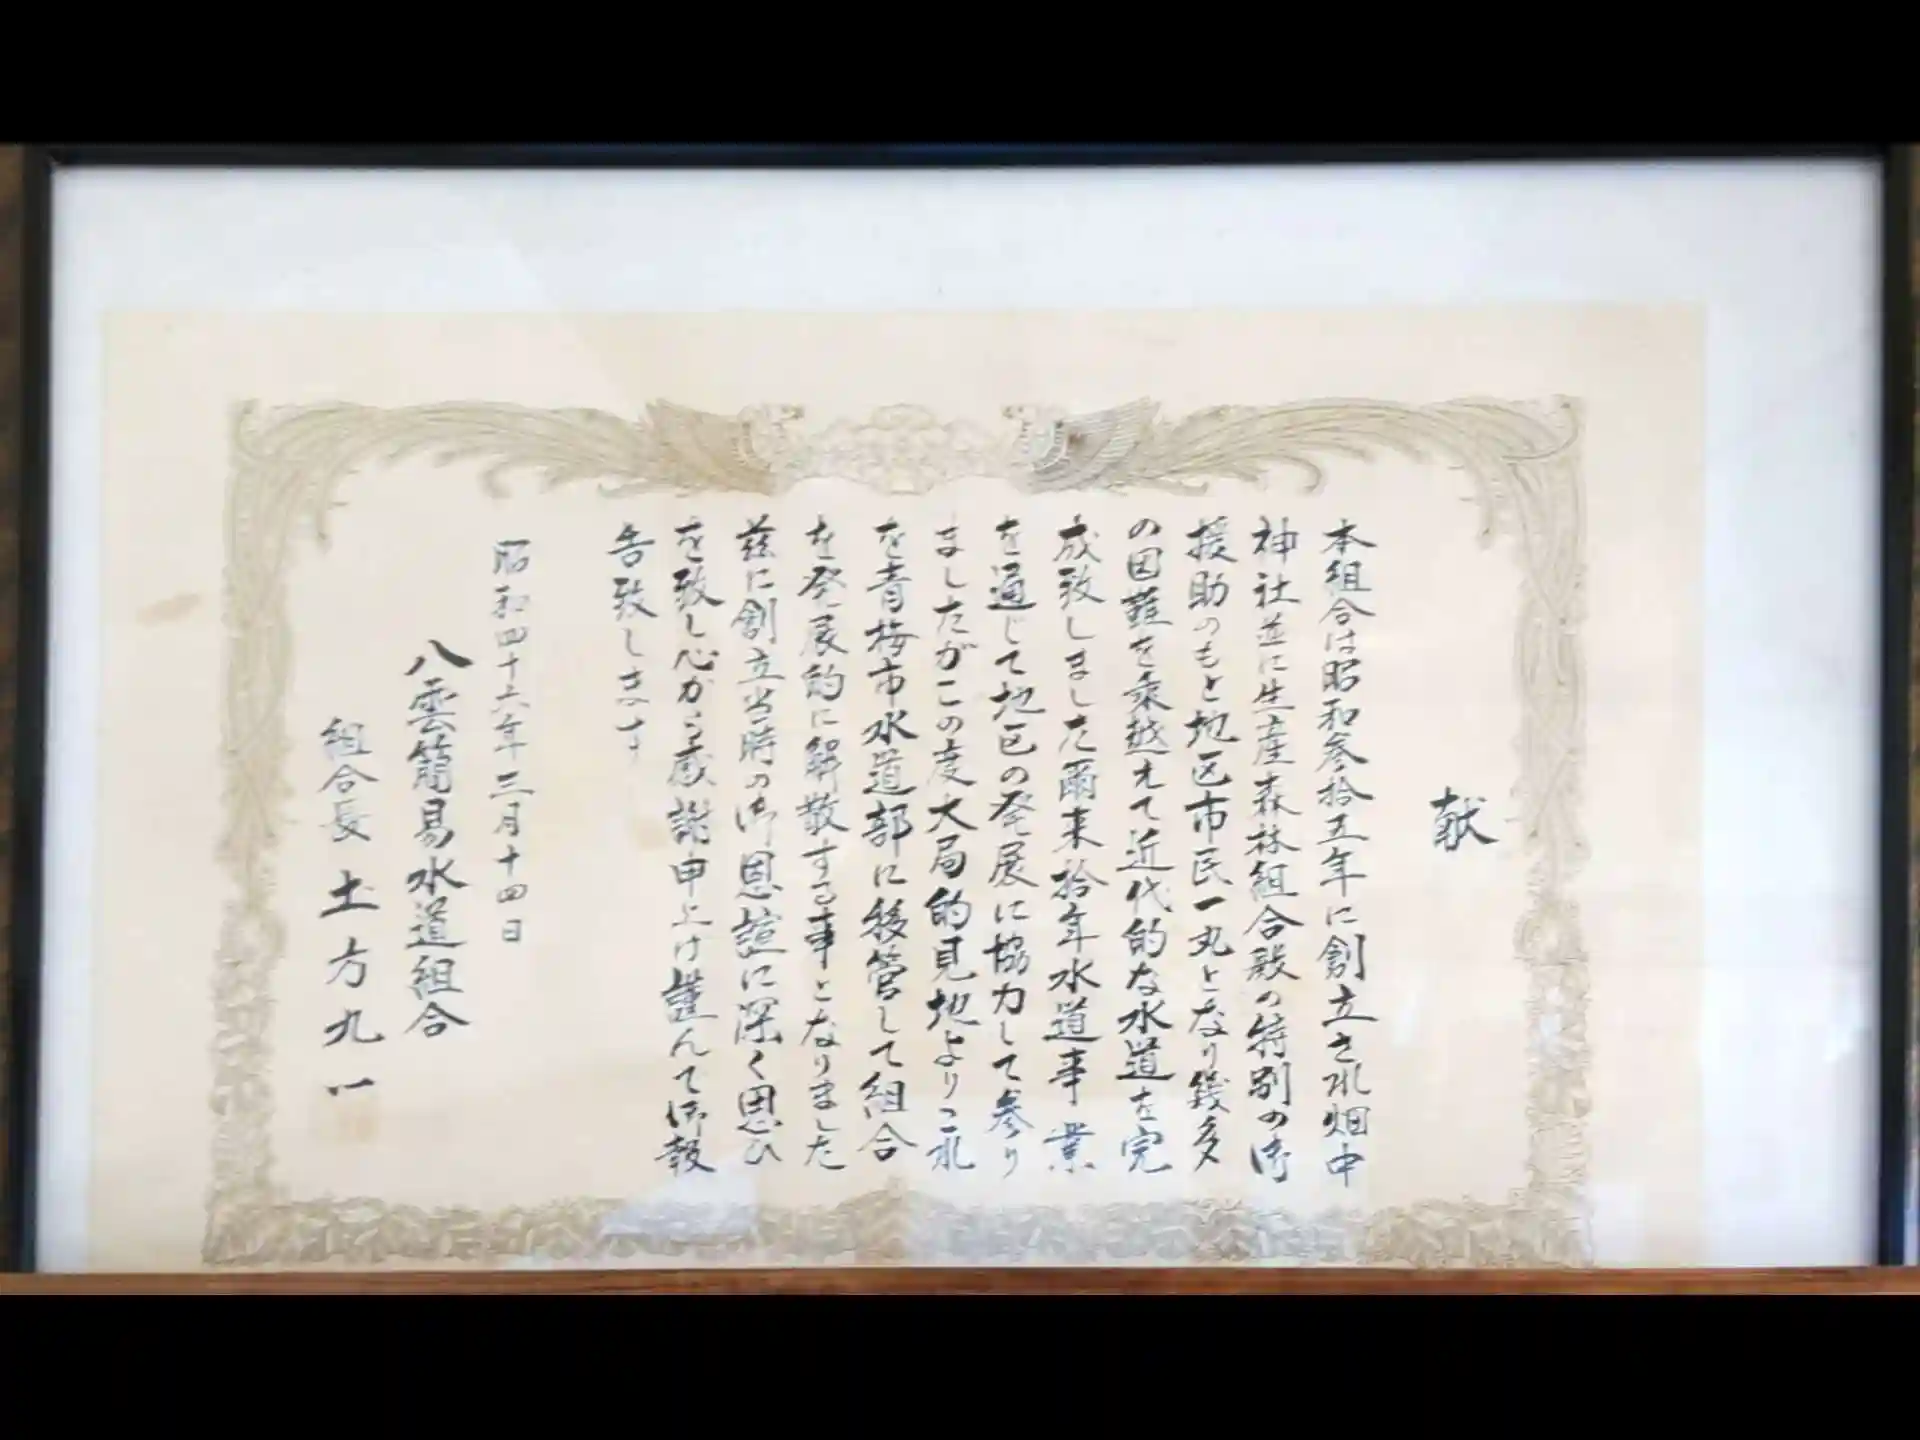 献
本組合は昭和参拾五年に創立され畑中
神社並に生産森林組合殿の特別の御
援助のもと地区市民一丸となり幾多
の困難を乗越えて近代的な水道を完
成致しました爾来拾年水道事業
を通じて地区の発展に協力して参り
ましたがこの度大局的見地よりこれ
を青梅市水道部に移管して組合
を発展的に解散する事となりました
茲に創立当時の御恩誼に深く思ひ
を致し心から感謝申上げ謹んで御報
告致します
昭和四十六年三月十四日
八雲簡易水道組合
組合長 土方九一